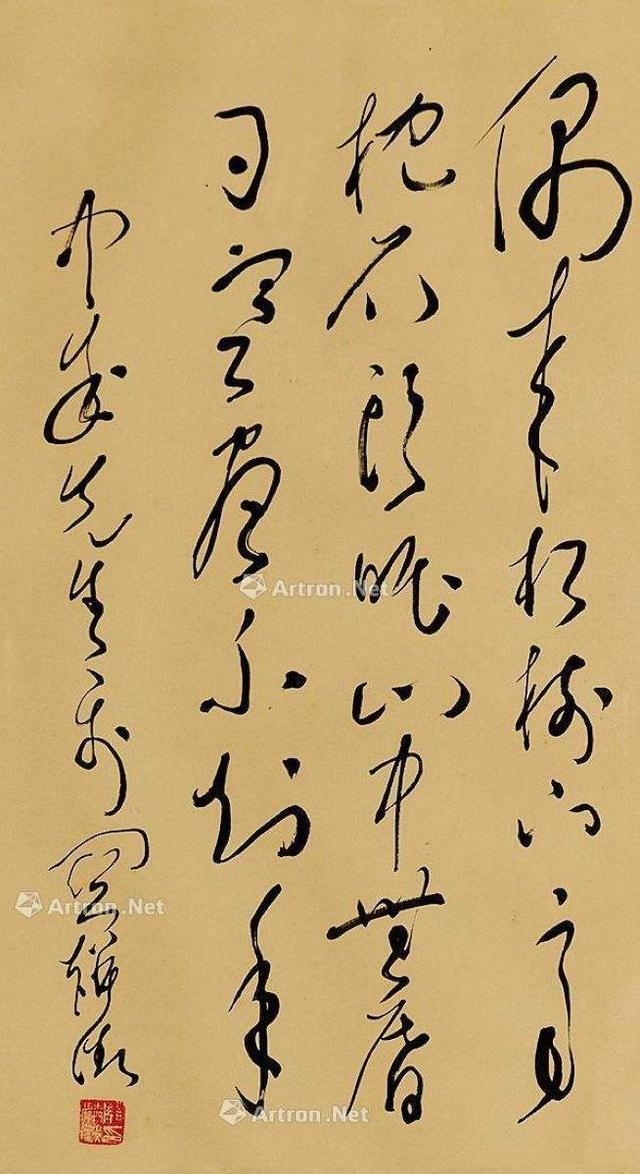 偶來松樹下高
枕石頭眠山中無曆
日寒盡不知年
先生
Artron.Net
Artron.Net
Artron.Net